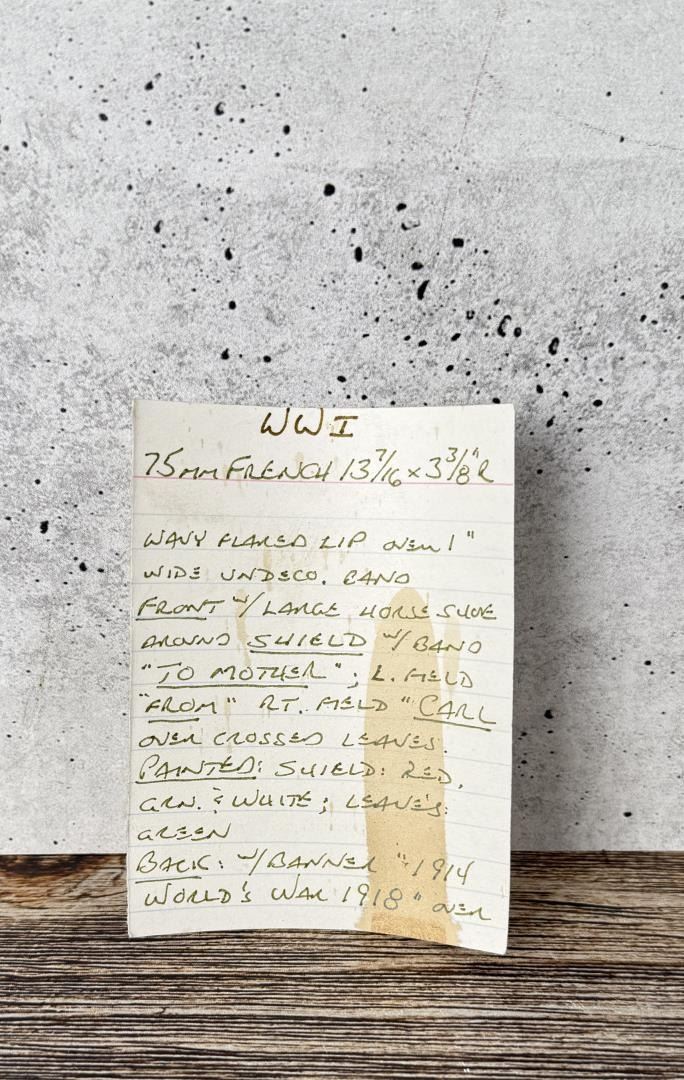 WWI
75MM FRENCH 13 7/16 x 3 3/8" R
WAVY FLARED LIP OVER 1"
WIDE UNDECO. BAND
FRONT W/LARGE HORSE SHOE
AROUND SHIELD W/BAND
"TO MOTHER"; L. FIELD
"FROM" RT. FIELD "CARL
OVER CROSSED LEAVES.
PAINTED: SHIELD: RED,
GRN. & WHITE; LEAVES:
GREEN
BACK: W/BANNER "1914
WORLD'S WAR 1918" OVER